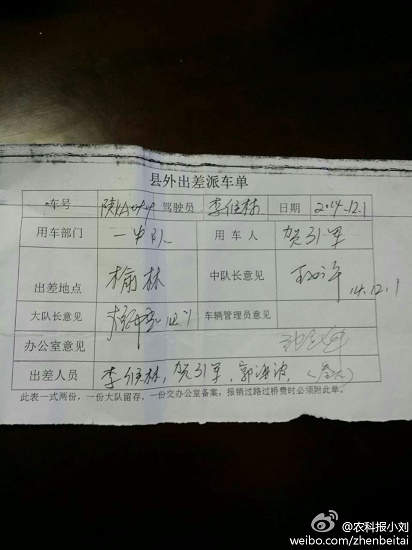 县外出差派车单
车号 驾驶员 李任林 日期 2014.12.1
用车部门 一中队 用车人 贺引军
出差地点 榆林 中队长意见 14.12.1
大队长意见 12.1 车辆管理员意见
办公室意见
出差人员 李任林, 贺引军,
此表一式两份，一份大队留存，一份交办公室备案，报销过路过桥费时必须附此单。
@农科报小刘
weibo.com/zhenbeitai